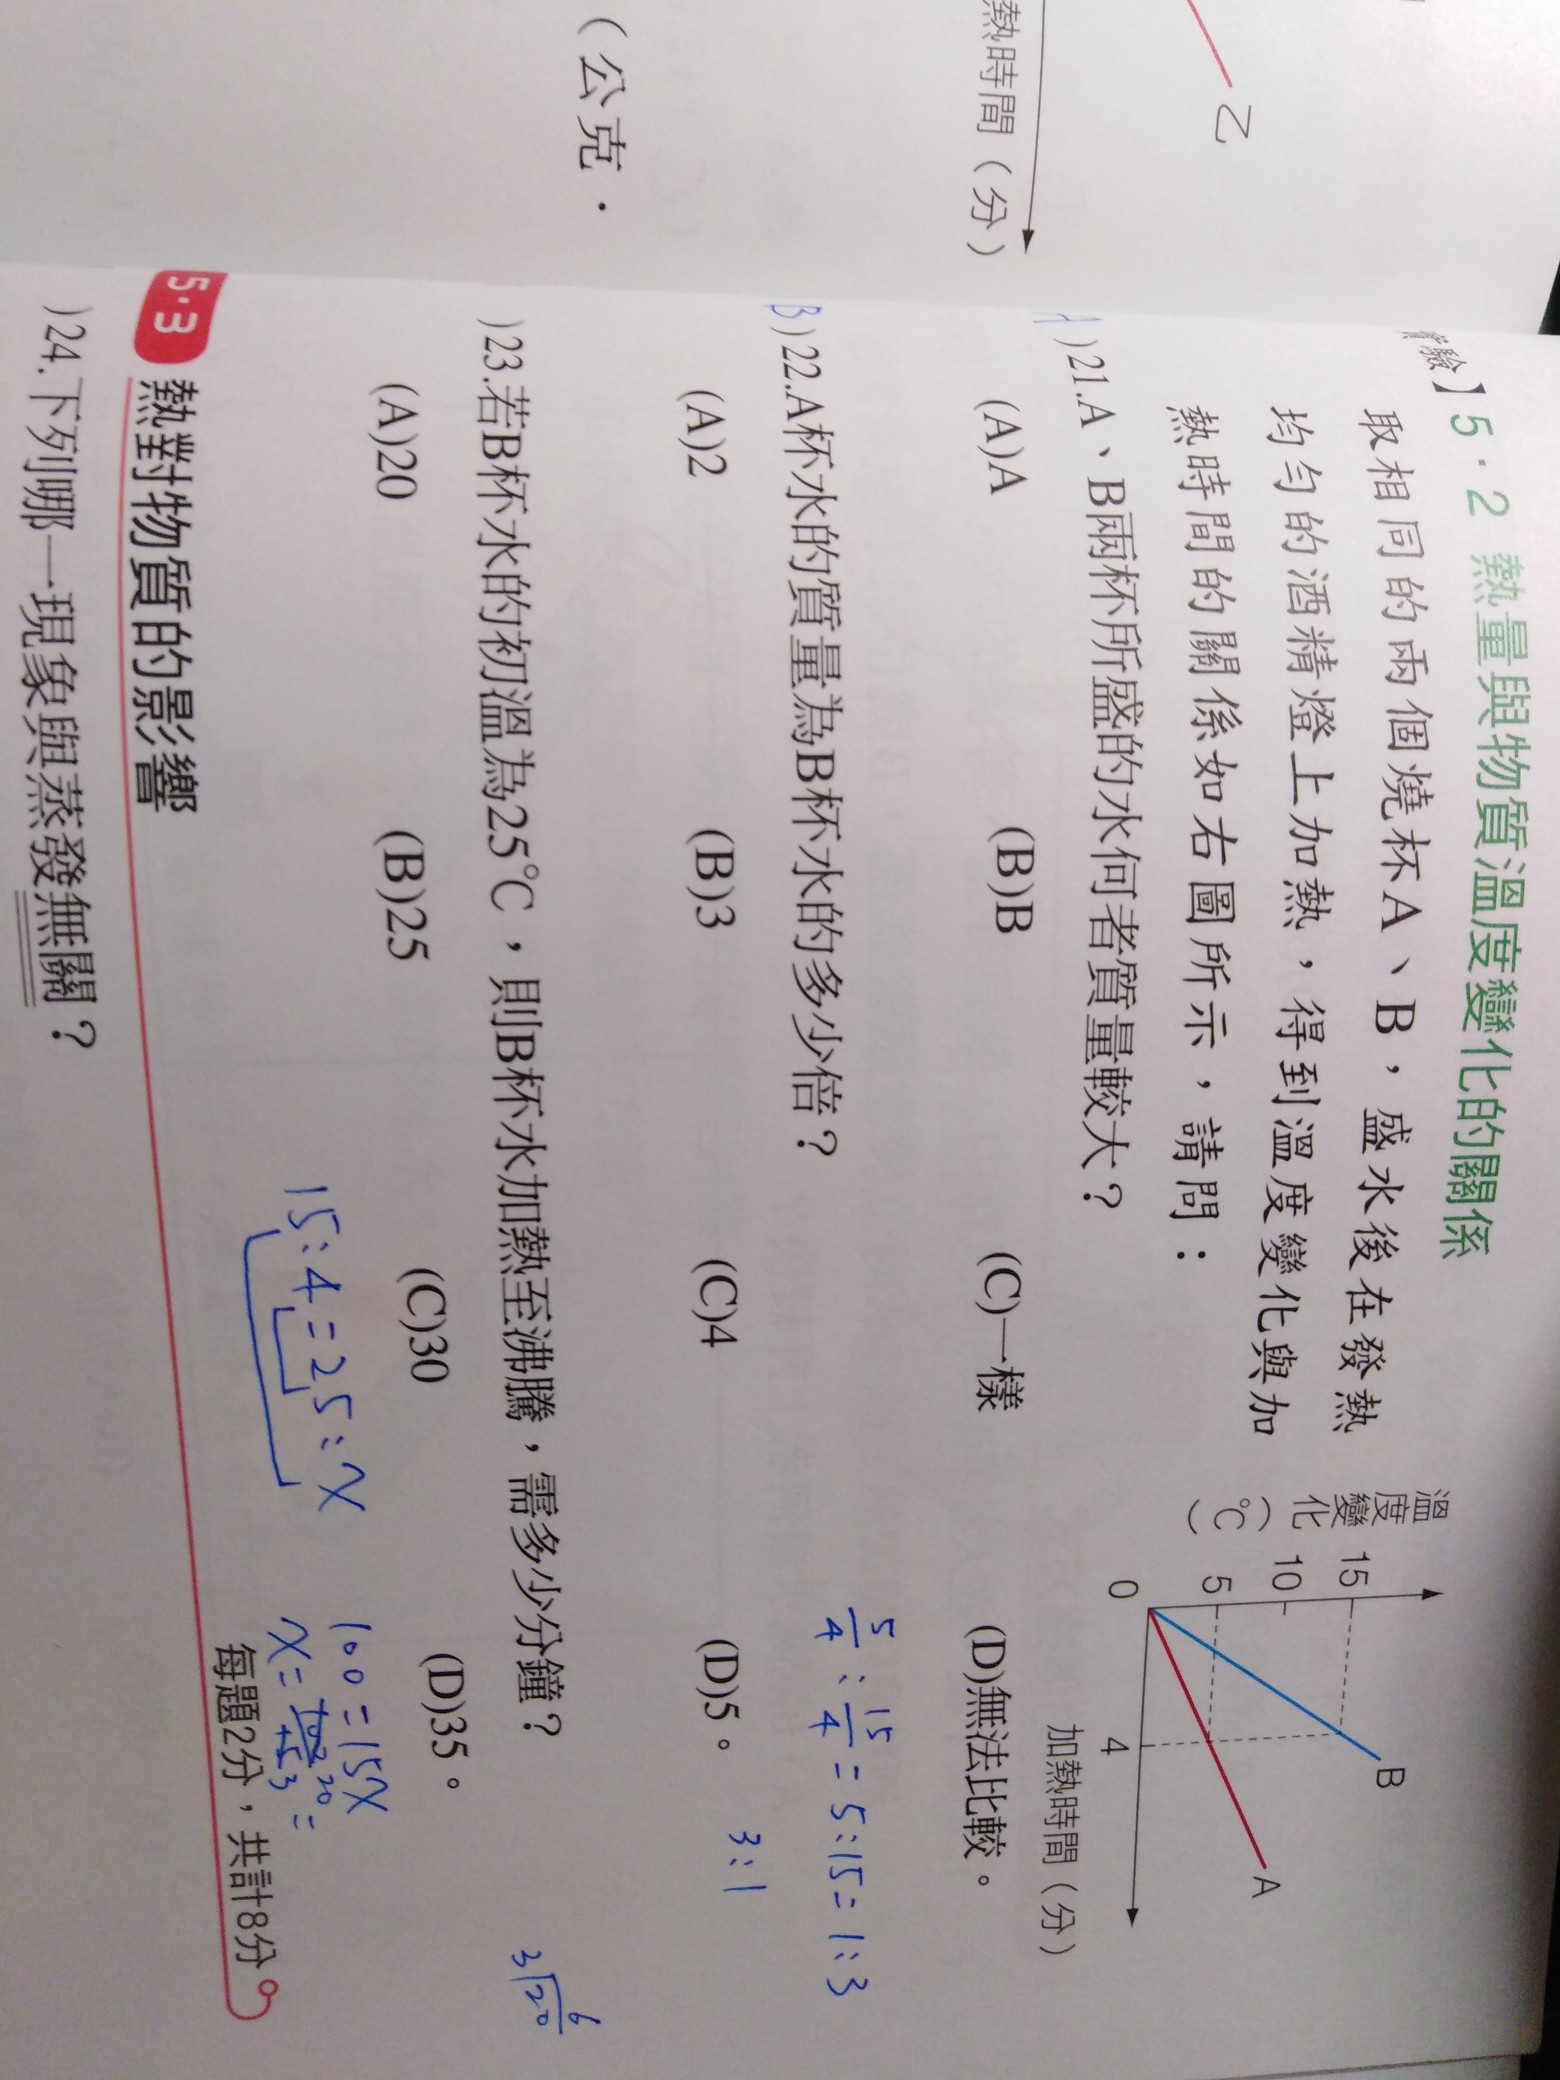 乙
熱時間（分）
（公克．
實驗】
5．2 熱量與物質溫度變化的關係
取相同的兩個燒杯A、B，盛水後在發熱
均勻的酒精燈上加熱，得到溫度變化與加
熱時間的關係如右圖所示，請問：
溫度變化（℃）
15
10
5
0
4
B
A
加熱時間（分）
A )21.A、B兩杯所盛的水何者質量較大？
(A)A (B)B (C)一樣 (D)無法比較。
5/4 : 15/4 = 5:15 = 1:3
B )22.A杯水的質量為B杯水的多少倍？
3:1
(A)2 (B)3 (C)4 (D)5。
)23.若B杯水的初溫為25℃，則B杯水加熱至沸騰，需多少分鐘？
(A)20 (B)25 (C)30 (D)35。
6
3 20
15:4=25:X
100=15X
X=
20
3
=
5·3 熱對物質的影響
每題2分，共計8分
)24.下列哪一現象與蒸發無關？